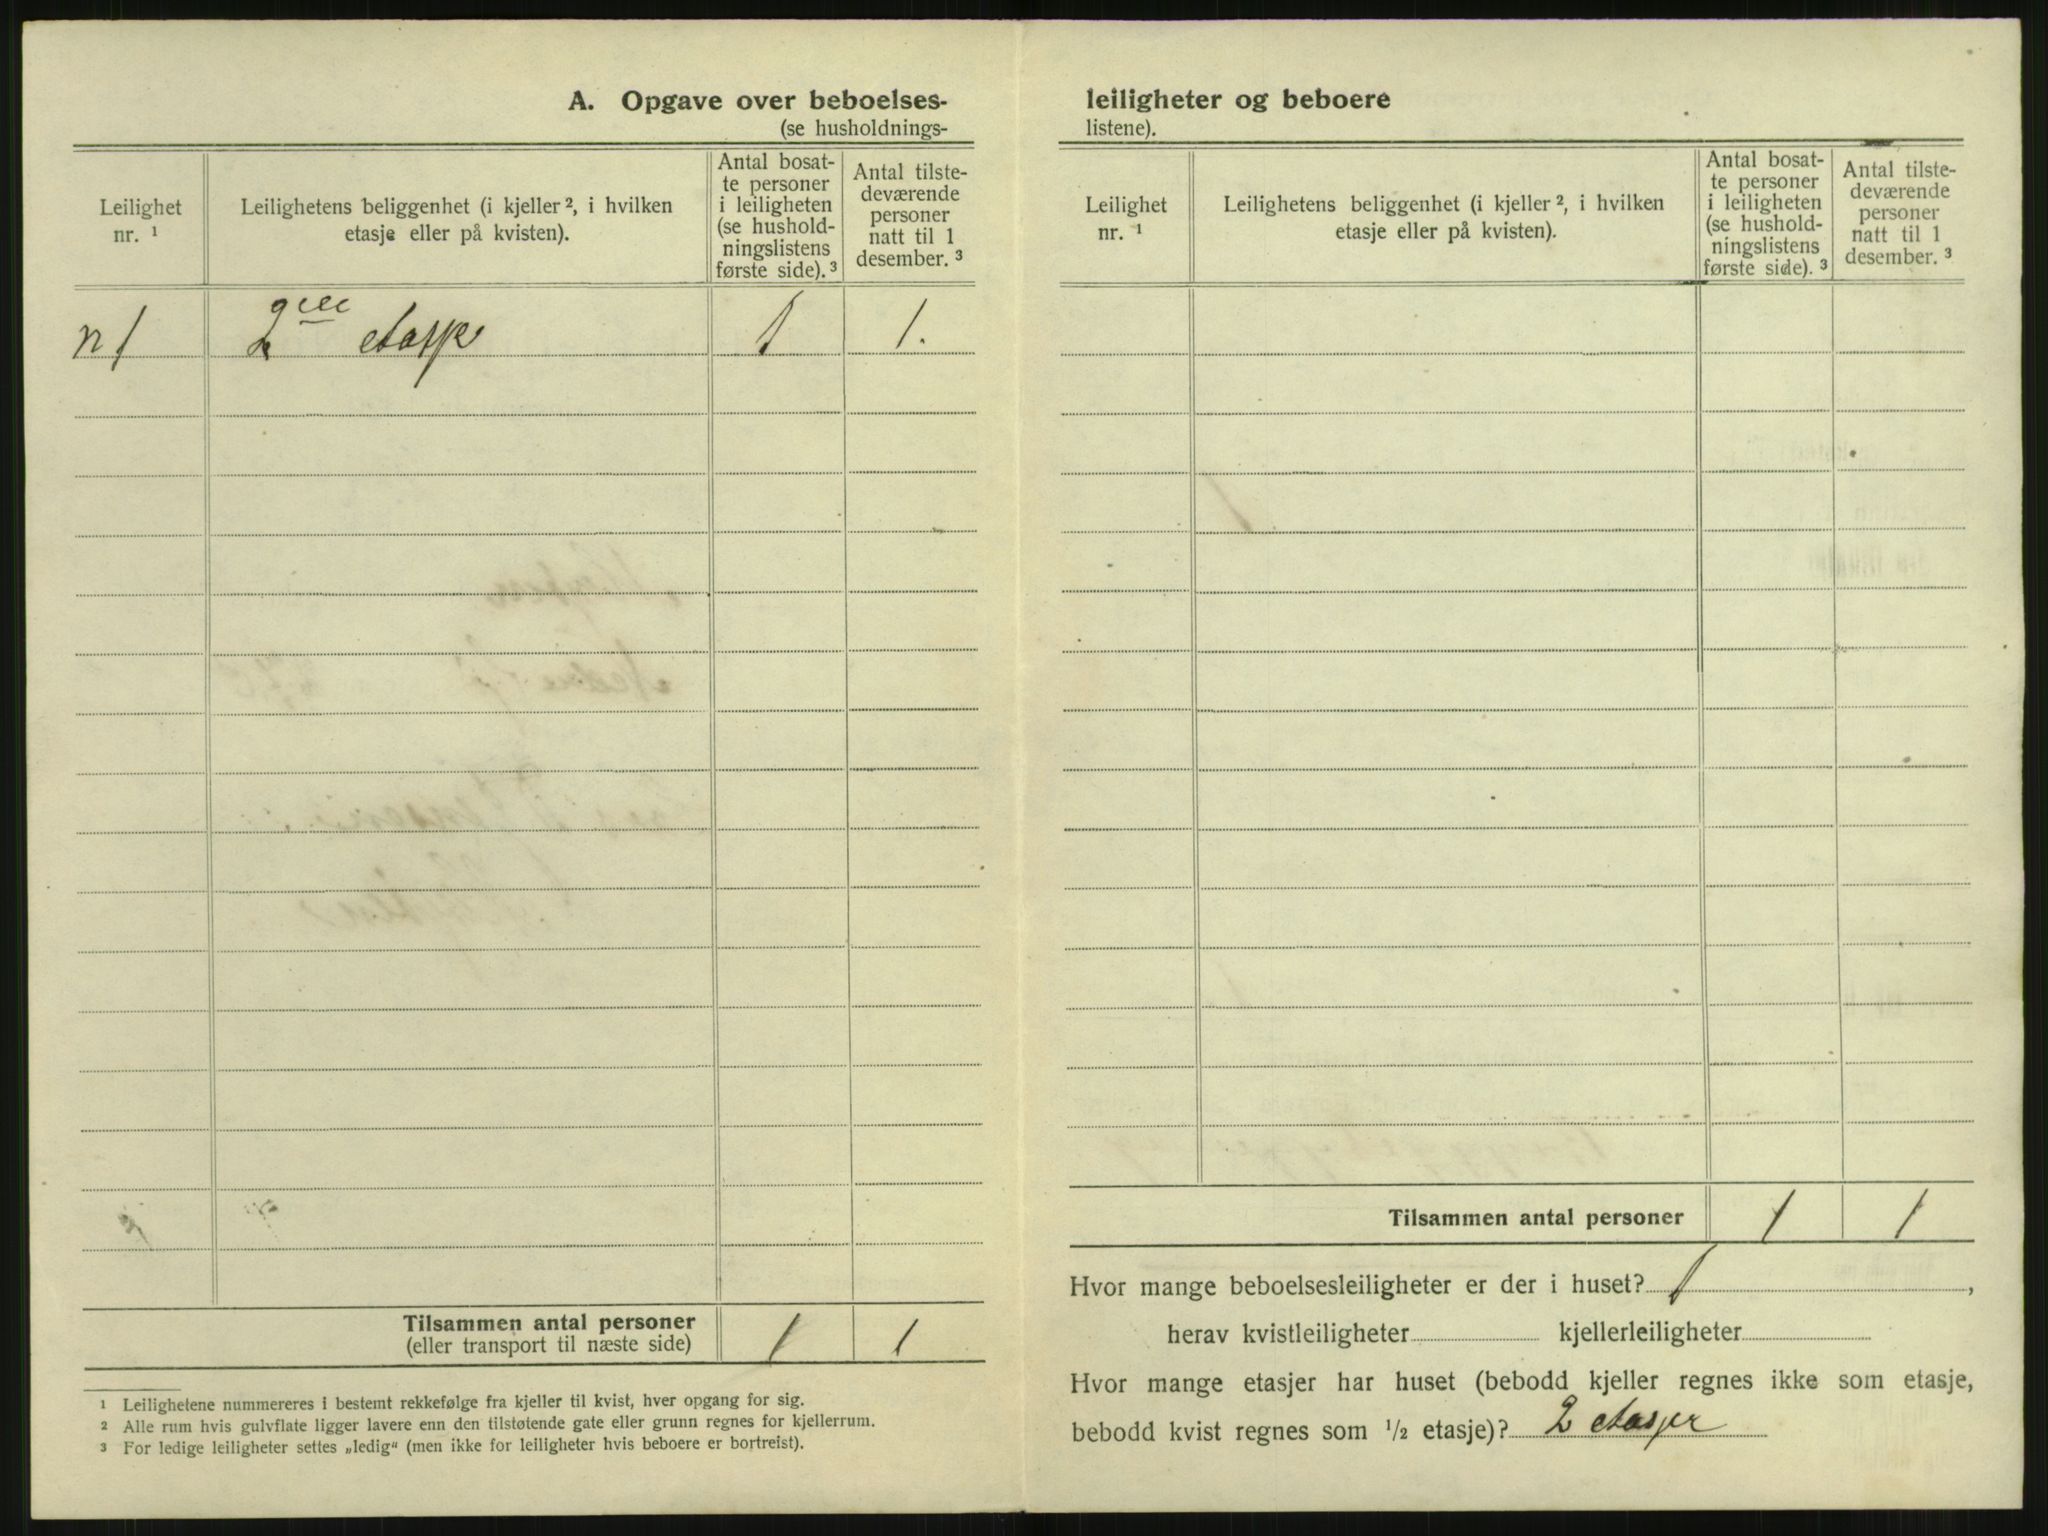 A. Opgave over beboelses-
(se husholdnings-
Leilighet
nr. ¹
Leilighetens beliggenhet (i kjeller ², i hvilken
etasje eller på kvisten).
Antal bosat-
te personer
i leiligheten
(se hushold-
ningslistens
første side). ³
Antal tilste-
deværende
personer
natt til 1
desember. ³
n 1
etasje
1
1.
Tilsammen antal personer
(eller transport til næste side)
1
1
¹ Leilighetene nummereres i bestemt rekkefølge fra kjeller til kvist, hver opgang for sig.
² Alle rum hvis gulvflate ligger lavere enn den tilstøtende gate eller grunn regnes for kjellerrum.
³ For ledige leiligheter settes „ledig“ (men ikke for leiligheter hvis beboere er bortreist).
leiligheter og beboere
listene).
Leilighet
nr. ¹
Leilighetens beliggenhet (i kjeller ², i hvilken
etasje eller på kvisten).
Antal bosat-
te personer
i leiligheten
(se hushold-
ningslistens
første side). ³
Antal tilste-
deværende
personer
natt til 1
desember. ³
Tilsammen antal personer
1
1
Hvor mange beboelsesleiligheter er der i huset? 1,
herav kvistleiligheter kjellerleiligheter
Hvor mange etasjer har huset (bebodd kjeller regnes ikke som etasje,
bebodd kvist regnes som ½ etasje)? 2 etasjer